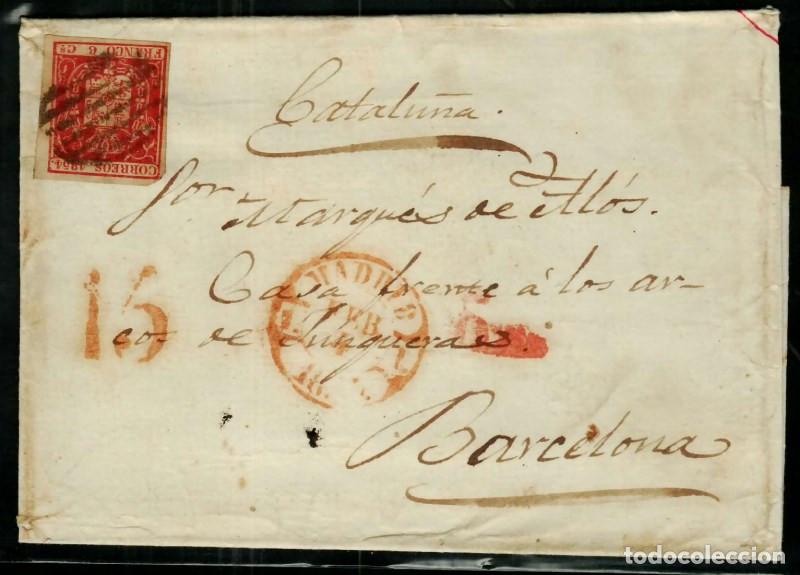 FRANCO 6 Cs
CORREOS 1854.
Cataluña.
Sor Marqués de Alós.
Casa frente á los ar-
cos de Junqueras.
Barcelona
15
MADRID
FEB
todocoleccion